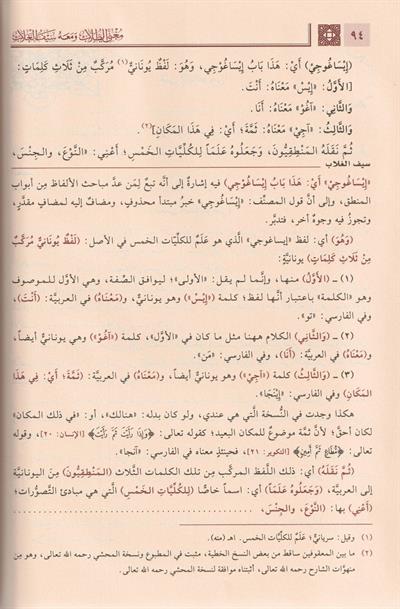 ٩٤
مغني الطلاب ومعه سيف الغلاب
(إِيْسَاغُوجِيْ) أَيْ: هَذَا بَابُ إِيْسَاغُوجِي، وَهُوَ: لَفْظٌ يُونَانِيٌّ(١) مُرَكَّبٌ مِنْ ثَلَاثِ كَلِمَاتٍ:
[الْأَوَّلُ: «إِيْسَ» مَعْنَاهُ: أَنْتَ.
وَالثَّانِي: «آغُوْ» مَعْنَاهُ: أَنَا.
وَالثَّالِثُ: «آجِيْ» مَعْنَاهُ: ثَمَّةَ؛ أَيْ: فِي هَذَا الْمَكَانِ](٢).
ثُمَّ نَقَلَهُ الْمَنْطِقِيُّونَ، وَجَعَلُوهُ عَلَماً لِلكُلِّيَّاتِ الْخَمْسِ؛ أَعْنِي: «النَّوْعَ، وَالْجِنْسَ،
سيف الغلاب
«إِيْسَاغُوجِيْ» أَيْ: هَذَا بَابُ إِيْسَاغُوجِي) فيه إشارة إلى أنَّه تبعٌ لِمَن عدَّ مباحث الألفاظ من أبواب
المنطق، وإلى أنَّ قول المصنِّف: «إِيْسَاغُوجِيْ» خبرُ مبتدأ محذوفٍ، ومضاف إليه لمضافٍ مقدَّرٍ،
وتجوز فيه وجوهٌ أخر، فتدبَّر.
(وَهُوَ) أي: لفظ «إيساغوجي» الَّذي هو عَلَمٌ للكلِّيَّات الخمس في الأصل: (لَفْظٌ يُونَانِيٌّ مُرَكَّبٌ
مِنْ ثَلَاثِ كَلِمَاتٍ) يونانيَّةٍ:
(١) ـ (الأَوَّلُ) منها، وإنَّما لم يقل: «الأولى»؛ ليوافق الصِّفة، وهي الأوَّل للموصوف
وهو «الكلمة» باعتبار أنَّها لفظ؛ كلمة («إِيْسَ») وهو يونانيٌّ، و(مَعْنَاهُ) في العربيَّة: (أَنْتَ)،
وفي الفارسي: «تو».
(٢) ـ (وَالثَّانِي) الكلام ههنا مثل ما كان في «الأوَّل»، كلمة («آغُوْ») وهي يونانيٌّ أيضاً،
و(مَعْنَاهُ) في العربيَّة: (أَنَا)، وفي الفارسي: «مَن».
(٣) ـ (وَالثَّالِثُ) كلمة («آجِيْ») وهو يونانيٌّ أيضاً، و(مَعْنَاهُ) في العربيَّة: (ثَمَّةَ؛ أَيْ: فِي هَذَا
الْمَكَانِ) وفي الفارسي: «إِيْنجَا».
هكذا وجدت في النُّسخة الَّتي هي عندي، ولو كان بدله: «هنالك»، أو: «في ذلك المكان»
لكان أحقَّ؛ لأنَّ ثمَّة موضوعٌ للمكان البعيد؛ كقوله تعالى: ﴿وَإِذَا رَأَيْتَ ثَمَّ رَأَيْتَ﴾ [الإنسان: ٢٠]، وقوله
تعالى: ﴿مُّطَاعٍ ثَمَّ أَمِينٍ﴾ [التكوير: ٢١]، فحينئذٍ معناه في الفارسي: «آنجا».
(ثُمَّ نَقَلَهُ) أي: ذلك اللَّفظ المركَّب من تلك الكلمات الثَّلاث (الْمَنْطِقِيُّونَ) من اليونانيَّة
إلى العربيَّة، (وَجَعَلُوهُ عَلَماً) أي: اسماً خاصًّا (لِلْكُلِّيَّاتِ الْخَمْسِ) الَّتي هي مبادئ التَّصوُّرات؛
(أَعْنِي) بها: (النَّوْعَ، وَالْجِنْسَ،
(١) وقيل: سريانيٌّ؛ عَلَمٌ للكلِّيَّات الخمس. اهـ (منه).
(٢) ما بين المعقوفين ساقط من بعض النسخ الخطية، مثبت في المطبوع ونسخة المحشي رحمه الله تعالى، وهو مِن
منهوَّات الشارح رحمه الله تعالى، أثبتناه موافقة لنسخة المحشي رحمه الله تعالى.